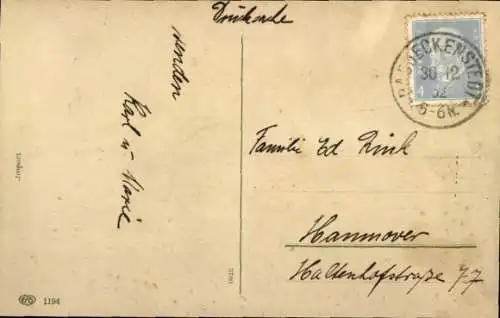 Drucksache
senden
Karl u Marie
BADDECKENSTEDT
30.12
32
5-6N.
4
Familie Ed Rink
Hannover
Haltenhofstraße 77
1194